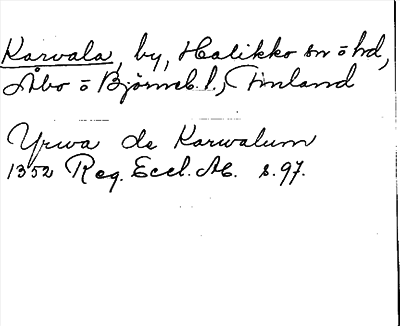 Karvala, by, Halikko sn o hd,
Åbo o Björneb. l., Finland
Yrwa de Karwalum
1352 Reg. Eccl. Ab. s. 97.